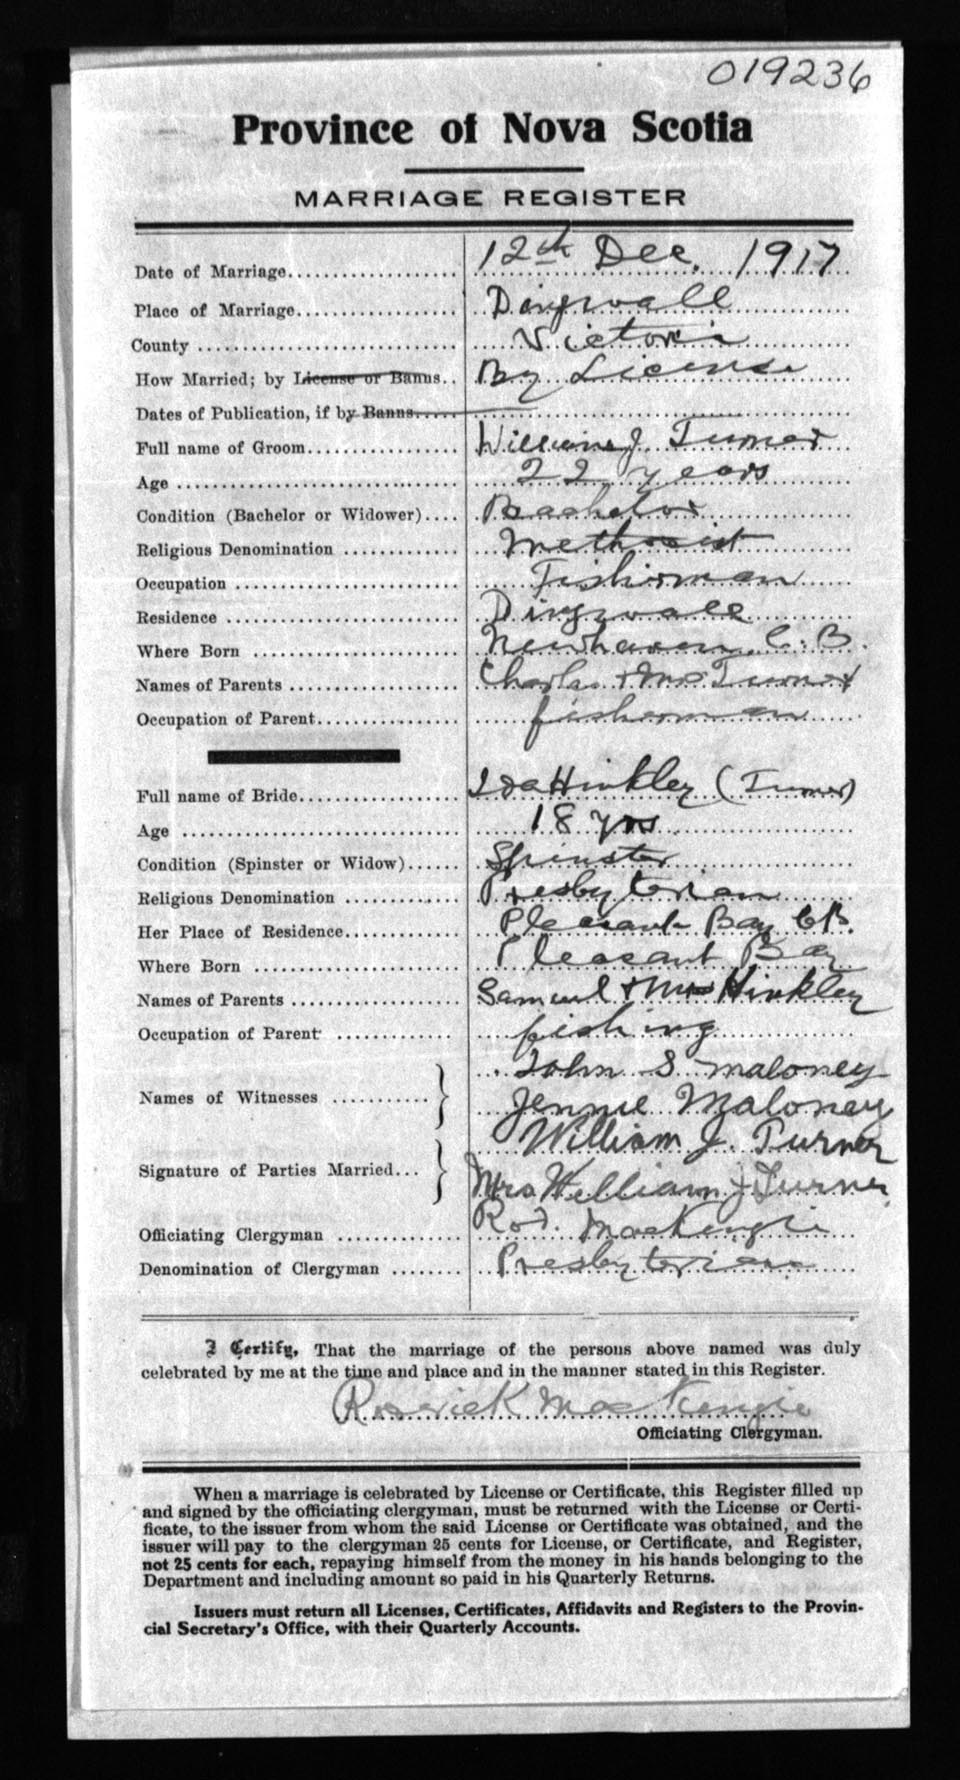 019236
Province of Nova Scotia
MARRIAGE REGISTER
Date of Marriage.................... 12th Dec. 1917
Place of Marriage................... Dingwall
County .............................. Victoria
How Married; by License or Banns.. By License
Dates of Publication, if by Banns......
Full name of Groom.................. William J. Turner
Age .................................. 22 years
Condition (Bachelor or Widower).... Bachelor
Religious Denomination .............. Methodist
Occupation ........................... Fisherman
Residence ............................ Dingwall
Where Born ......................... Newhaven C.B.
Names of Parents .................... Charles & Mrs Turner
Occupation of Parent................. fisherman
Full name of Bride................... Ida Hinkley (Turner)
Age ................................. 18 yrs
Condition (Spinster or Widow)...... Spinster
Religious Denomination .............. Presbyterian
Her Place of Residence.............. Pleasant Bay CB.
Where Born ......................... Pleasant Bay
Names of Parents .................... Samuel & Mrs Hinkley
Occupation of Parent ............... fishing
Names of Witnesses ........... } John S Maloney
Jennie Maloney
Signature of Parties Married... } William J. Turner
Mrs William J Turner
Officiating Clergyman ............... Rod. MacKenzie
Denomination of Clergyman ........ Presbyterian
I Certify, That the marriage of the persons above named was duly
celebrated by me at the time and place and in the manner stated in this Register.
Roderick MacKenzie
Officiating Clergyman.
When a marriage is celebrated by License or Certificate, this Register filled up
and signed by the officiating clergyman, must be returned with the License or Certi-
ficate, to the issuer from whom the said License or Certificate was obtained, and the
issuer will pay to the clergyman 25 cents for License, or Certificate, and Register,
not 25 cents for each, repaying himself from the money in his hands belonging to the
Department and including amount so paid in his Quarterly Returns.
Issuers must return all Licenses, Certificates, Affidavits and Registers to the Provin-
cial Secretary's Office, with their Quarterly Accounts.